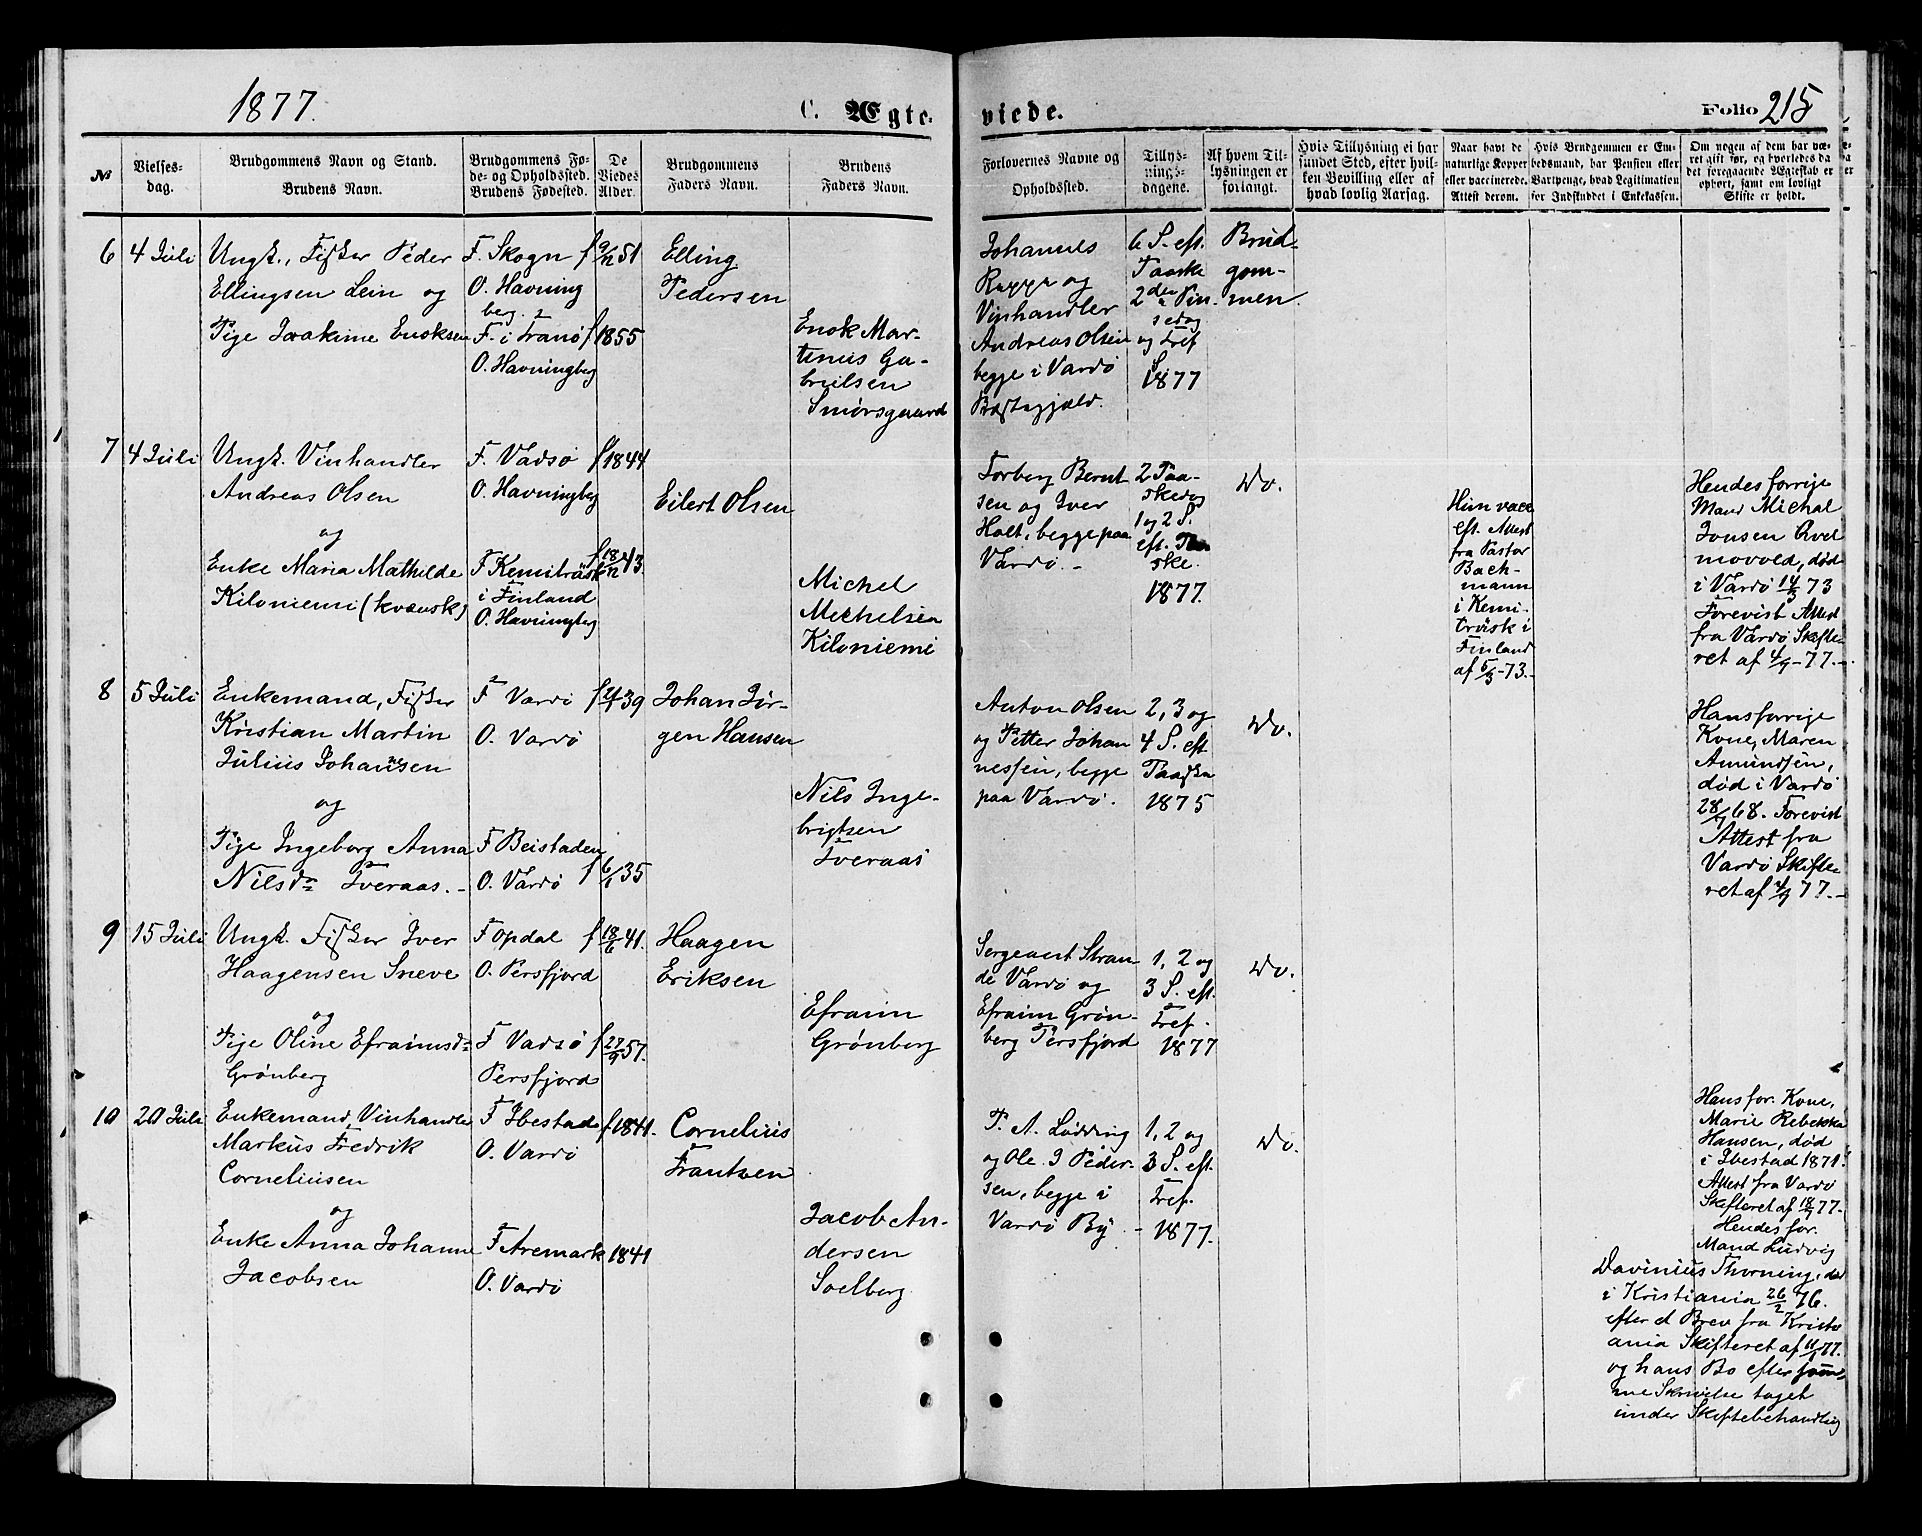 1877.
C. Ægte-
viede.
Folio 215
No
Vielses-
dag.
Brudgommens Navn og Stand.
Brudens Navn.
Brudgommens Fø-
de- og Opholdssted.
Brudens Fødested.
De
Viedes
Alder.
Brudgommens
Faders Navn.
Brudens
Faders Navn.
Forlovernes Navne og
Opholdssted.
Tillys-
nings-
dagene.
Af hvem Til-
lysningen er
forlangt.
Hvis Tillysning ei har
fundet Sted, efter hvil-
ken Bevilling eller af
hvad lovlig Aarsag.
Naar havt de
naturlige Kopper
eller vaccinerede.
Attest derom.
Hvis Brudgommen er Em-
bedsmand, har Pension eller
Vartpenge, hvad Legitimation
for Indskuddet i Enkekassen.
Om nogen af dem har væ-
ret gift før, og hvorledes da
det foregaaende Ægteskab er
ophørt, samt om lovligt
Skifte er holdt.
6
4 Juli
Ungk., Fisker Peder
Ellingsen Lein og
Pige Joakime Enoksen
F. Skogn
O. Havning
berg.
F. i Tranø
O. Havningberg
f 9/12 51
f 1855
Elling
Pedersen
Enok Mar-
tinus Ga-
brielsen
Smørsgaard
Johannes
og
Vinhandler
Andreas Olsen
begge i Vardø
Præstegjæld.
6 S. eft.
Paaske
2den Pin
sedag
og Tref
S
1877
Brud-
gom-
men.
7
4 Juli
Ungk. Vinhandler
Andreas Olsen
og
Enke Maria Mathilde
Kiloniemi (kvænsk)
F. Vadsø
O. Havningberg
F Kemiträsk
i Finland
O. Havningberg
f 1844
f 18/12 43.
Eilert Olsen
Michel
Michelsen
Kiloniemi
Torberg Bernt
sen og Iver
Holt, begge paa
Vardø. -
2 Paa-
skedag
1 og 2 S.
eft. Paa
ske.
1877.
Do.
Hun vacc
eft. Attest
fra Pastor
Bach-
mann
i Kemi-
träsk i
Finland
af 5/3-73.-
Hendes forrige
Mand Michal
Jonsen Qvel
movold, død
i Vardø 14/5 73
Forevist Attest
fra Vardø Skifte
ret af 4/9-77.-
8
5 Juli
Enkemand, Fisker
Kristian Martin
Julius Johansen
og
Pige Ingeborg Anna
Nilsdr Tveraas. -
F Vardø
O. Vardø
F Beistaden
O. Vardø
39
f 6/1 35
Johan Jør-
gen Hansen
Nils Inge-
brigtsen
Tveraas
Anton Olsen
og Petter Johan
nessen, begge
paa Vardø.
2, 3 og
4 S. eft
Paaske
1875
Do.
Hans forrige
Kone, Maren
Amundsen,
død i Vardø
68. Forevist
Attest fra
Vardø Skifte
ret af 4/9 77.-
9
15 Juli
Ungk. Fisker Iver
Haagensen Sneve
og
Pige Oline Efraimsdr
Grønberg
F Opdal
O. Persfjord
F Vadsø
Persfjord
f 18/6 41.
f 27/9 57.
Haagen
Eriksen
Efraim
Grønberg
Sergeant Stran-
de Vardø og
Efraim Grøn-
berg Persfjord
1, 2 og
3 S. eft.
Tref.
1877
Do.
10
20 Juli
Enkemand, Vinhandler
Markus Fredrik
Corneliusen
og
Enke Anna Johanne
Jacobsen
F Ibestad
O. Vardø
F Aremark
O. Vardø
f 1841.
1841
Cornelius
Frantsen
Jacob An-
dersen
Soelberg
P. A. Lødding
og Ole J Peder-
sen, begge i
Vardø By. -
1, 2 og
3 S. eft.
Tref.
1877.
Do.
Hans for. Kone,
Marie Rebekka
Hansen, død
i Ibestad 1871.
Attest fra Vardø
Skifteret af 18/7 77.-
Hendes for.
Mand Ludvig
Davinius Thorning, død
i Kristiania 26/2 76.
efter d Brev fra Kristi
ania Skifteret af 77.
og hans Bo efter sam-
me Skrivelse taget
under Skiftebehandling